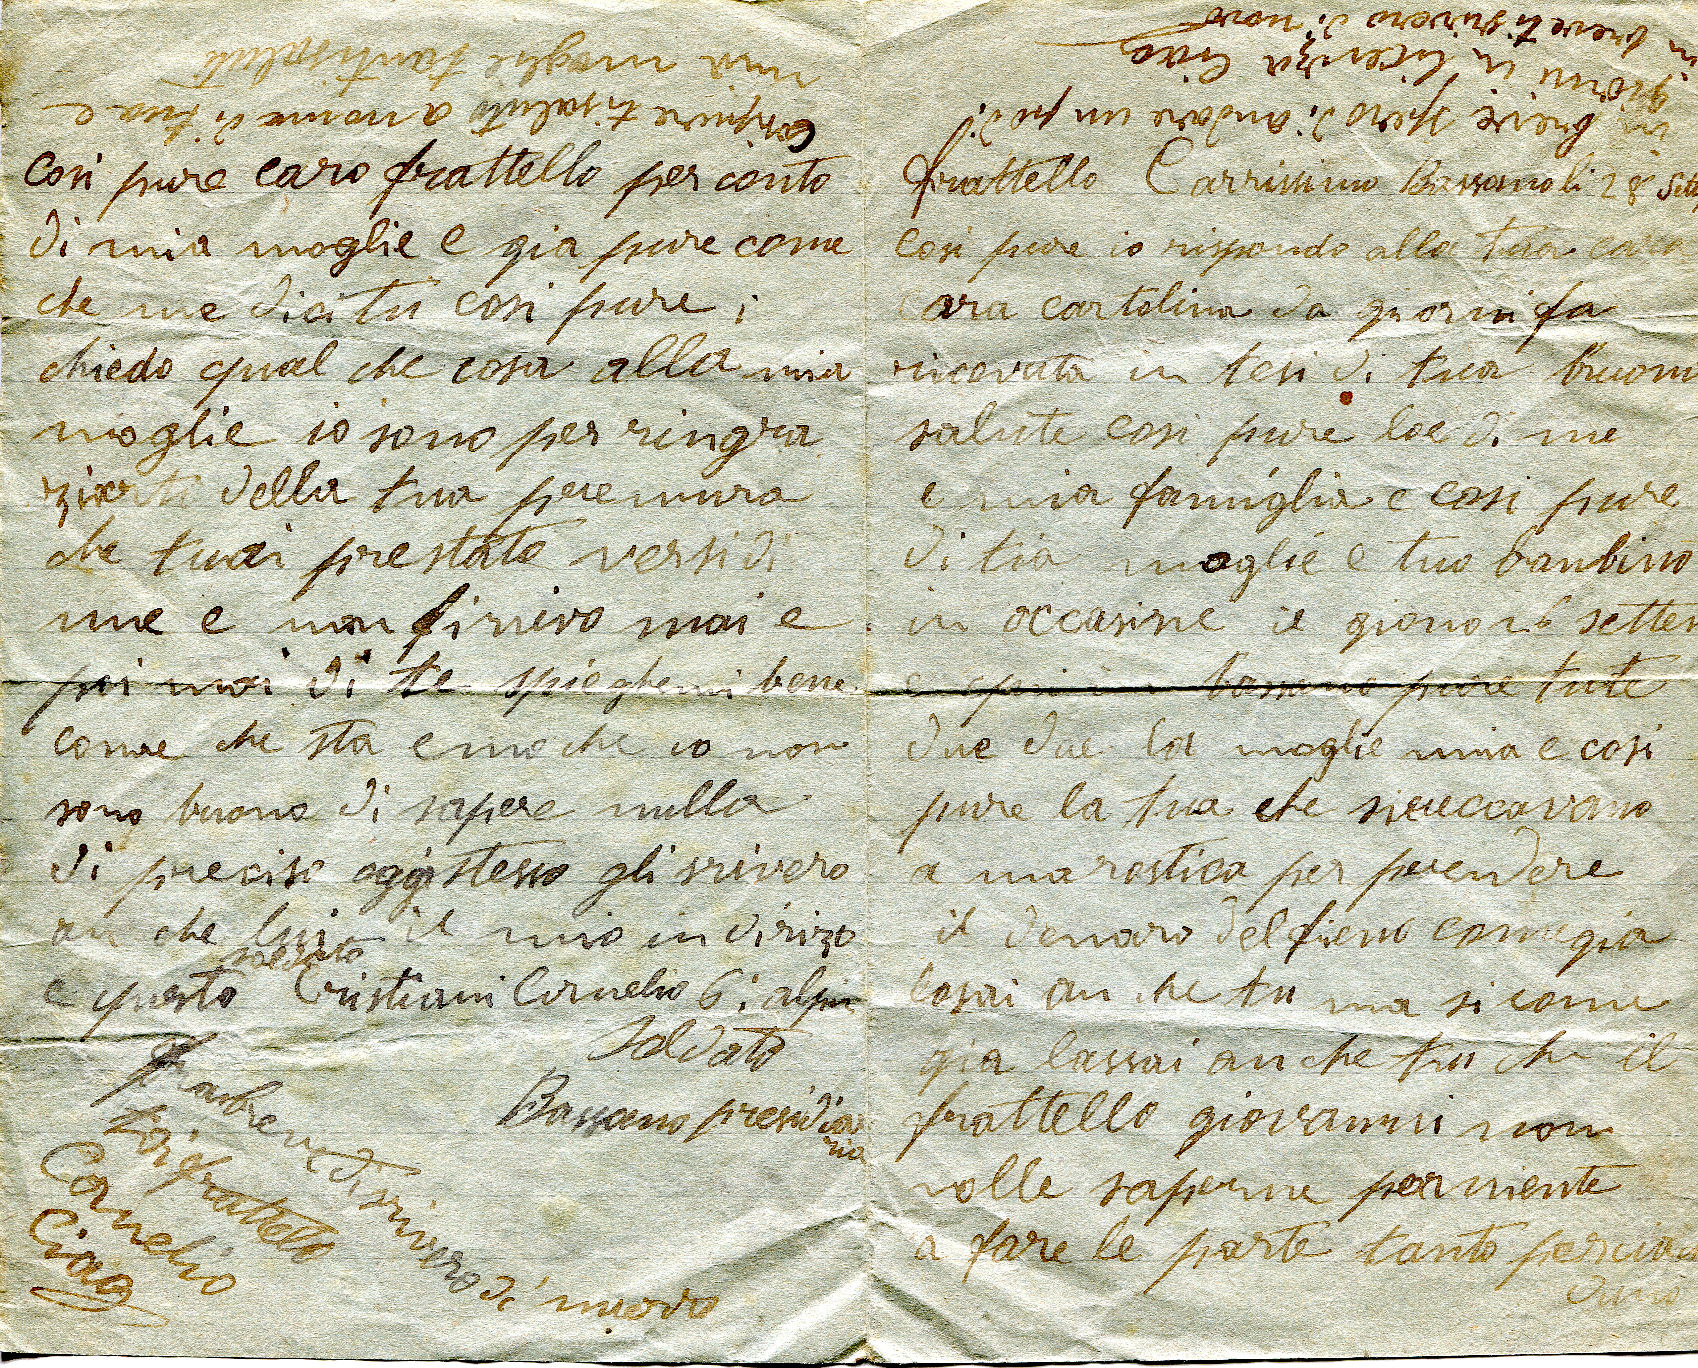 Frattello Carrissimo Bassano li 28 Sett
Cosi pure io rispondo alla tua cara
cara cartolina da giorni fa
ricevuta in tesi di tua buona
salute cosi pure loe di me
e mia famiglia e cosi pure
di tia moglie e tuo banbino
in occasine il giorno 16 setten
e bassano pure tute
due dae la moglie mia e cosi
pure la tua che sireccavano
a marostica per prendere
il denaro del fieno come gia
losai an che tu ma si come
gia lassai an che tu che il
frattello giovanni non
volle saperne per niente
a fare le parte tanto perciascu
duno
Cosi pure caro frattello per conto
di mia moglie e gia pure come
che me dici tu cosi pure i
chiedo qual che cosa alla mia
moglie io sono per ringra
ziarti della tua premura
che tuai prestato versi di
me e non finivo mai e
poi mai di te spieghemi bene
come che sta emo che io non
sono buono di sapere nulla
di preciso oggi stesso gli srivero
an che lui il mio in dirizo
soldato
e questo Cristiani Cornelio 6: alpin
Soldato
Bassano presidia
ria
fra breve di srivero di nuovo
tuo frattello
Cornelio
Ciao
Cosi pure ti saluto a nome di tua e
mia moglie tanti saluti
in breve spero di andare un po di
giorni in licenza Ciao
in breve ti srivero di novo